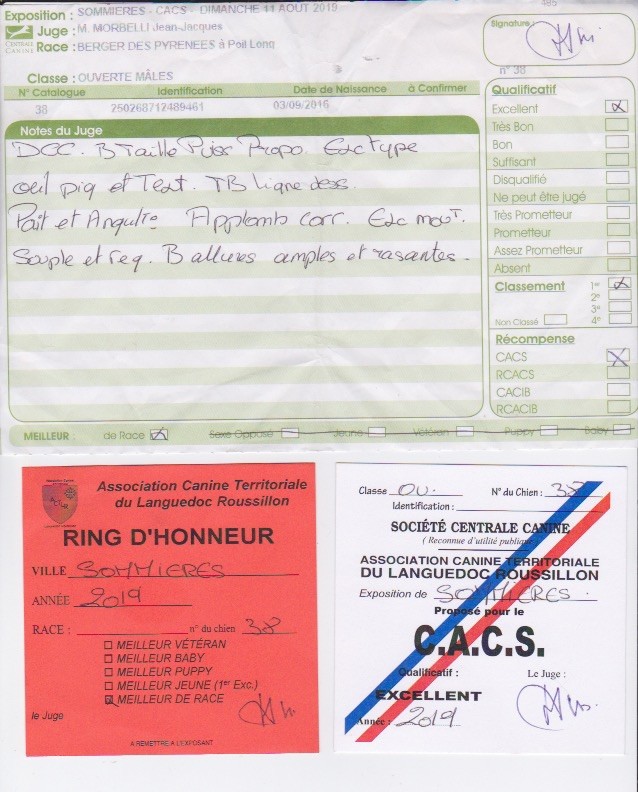 485
Exposition : SOMMIERES - CACS - DIMANCHE 11 AOUT 2019
Juge : M. MORBELLI Jean-Jacques
CENTRALE CANINE
Race : BERGER DES PYRENEES à Poil Long
Signature :
Classe : OUVERTE MÂLES
n° 38
N° Catalogue Identification Date de Naissance à Confirmer
38 250268712489461 03/09/2016
Notes du Juge
DCC. B Taille Puis Propo. Exc type
oeil pig et Text. TB ligne dess
Poit et Angult° Applomb corr. Exc mouvT.
Souple et reg. B allures amples et rasantes.
Qualificatif
Excellent
Très Bon
Bon
Suffisant
Disqualifié
Ne peut être jugé
Très Prometteur
Prometteur
Assez Prometteur
Absent
Classement 1er
2e
3e
Non Classé 4e
Récompense
CACS
RCACS
CACIB
RCACIB
MEILLEUR : de Race Sexe Opposé Jeune Vétéran Puppy Baby
Association Canine Territoriale
du Languedoc Roussillon
RING D'HONNEUR
VILLE SOMMIERES
ANNÉE 2019
RACE : n° du chien 38
MEILLEUR VÉTÉRAN
MEILLEUR BABY
MEILLEUR PUPPY
MEILLEUR JEUNE (1er Exc.)
MEILLEUR DE RACE
le Juge
A REMETTRE A L'EXPOSANT
Classe OU. N° du Chien : 38
Identification :
SOCIÉTÉ CENTRALE CANINE
( Reconnue d'utilité publique )
ASSOCIATION CANINE TERRITORIALE
DU LANGUEDOC ROUSSILLON
Exposition de SOMMIERES.
Proposé pour le
C.A.C.S.
Qualificatif : Le Juge :
EXCELLENT
Année : 2019